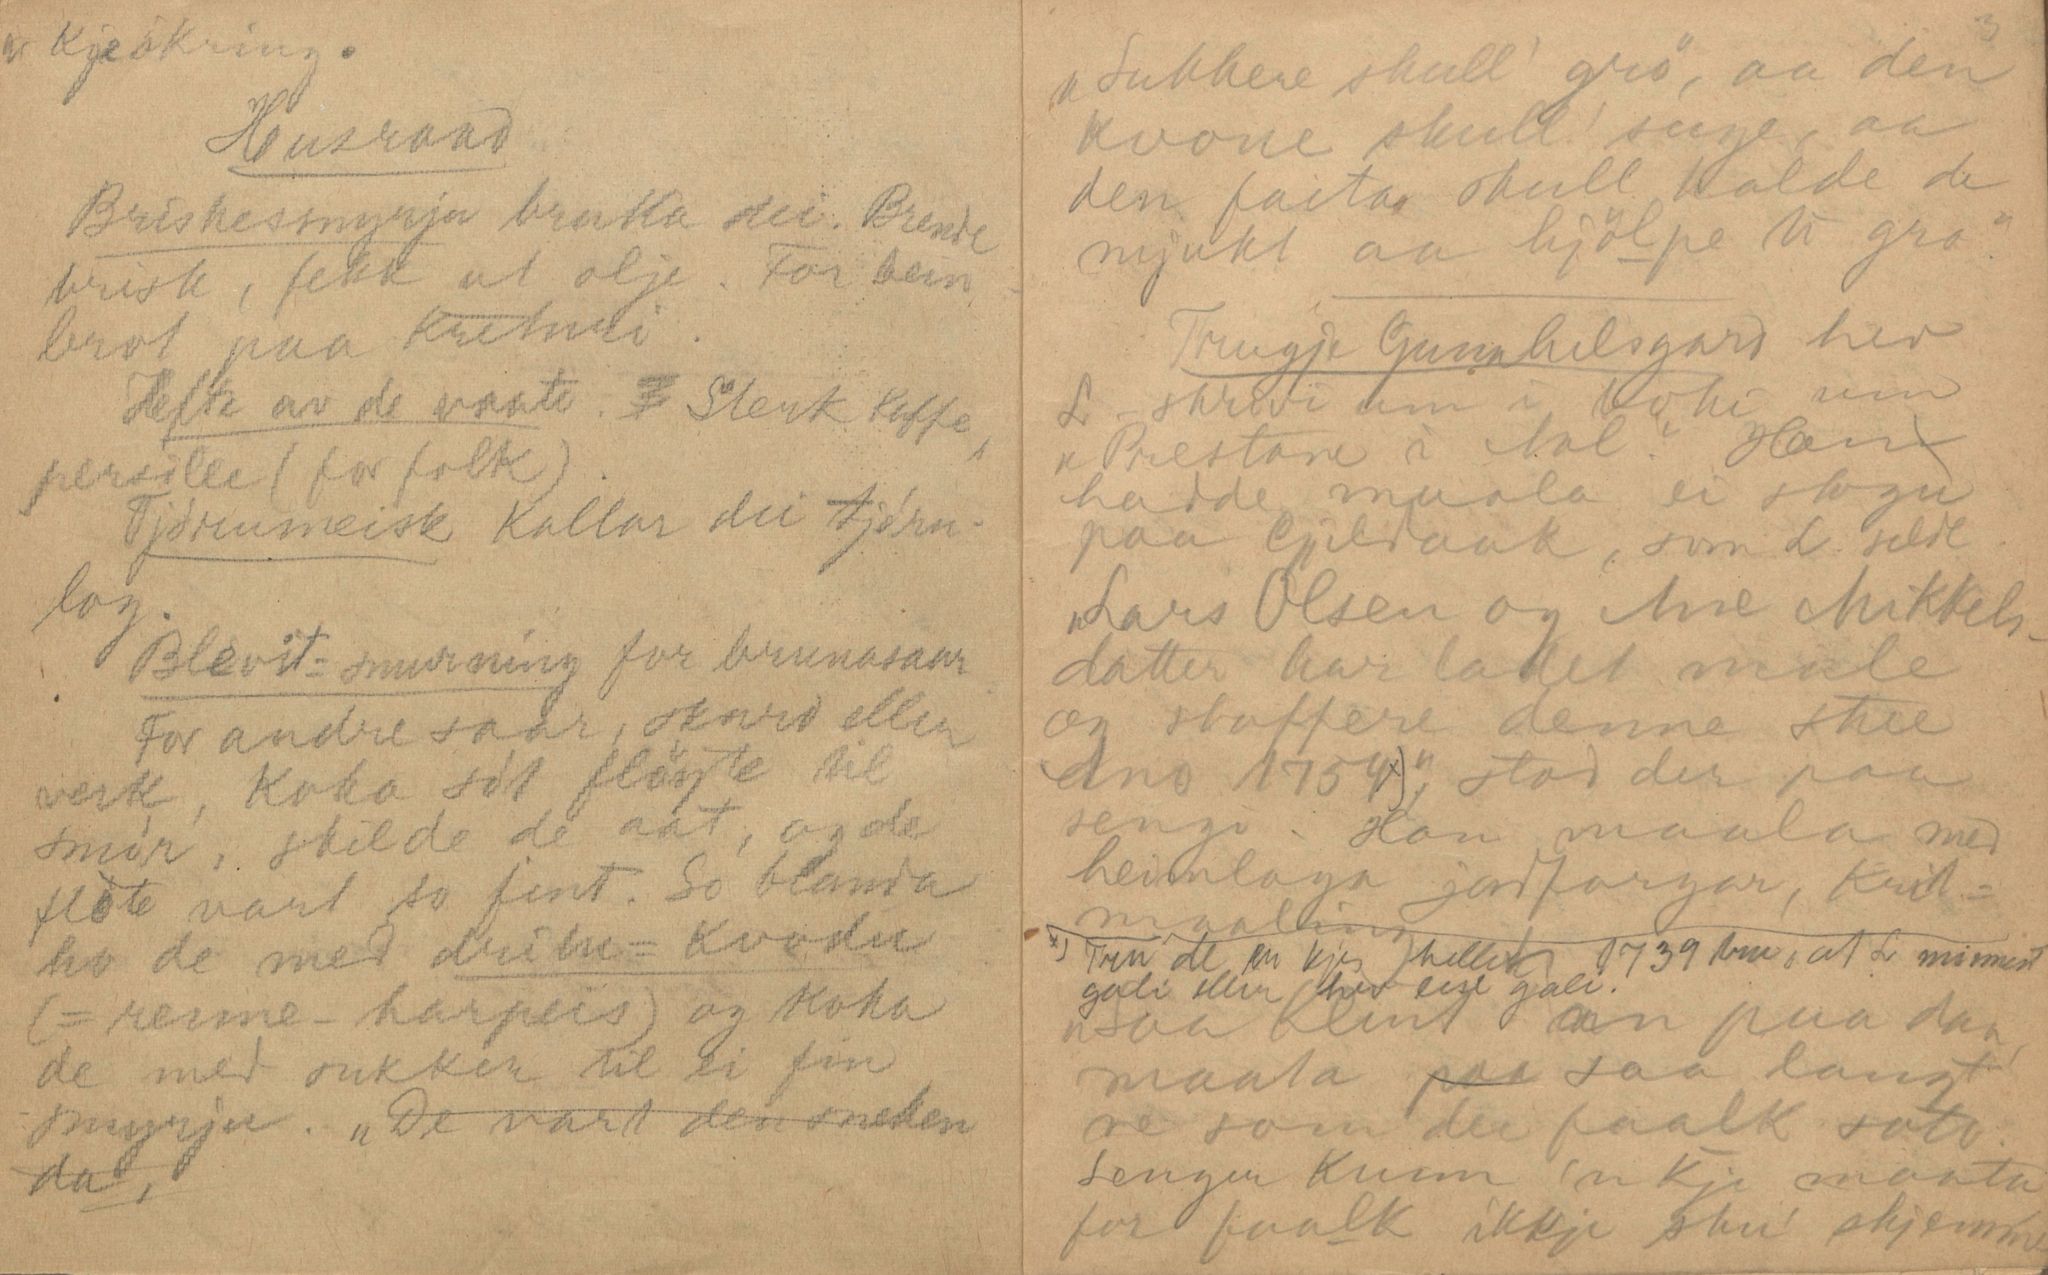 „ Kjeskring.
Husraad
Briskesmyrju bruka dei. Brende
brisk, fekk ut olje. For bein-
brot paa Kreturi.
Hefte av de vaate. Sterk Kaffe,
persille (for folk).
Tjörumeisk Kallar dei tjöru-
log.
Blevit=smurning for brunasaar
For andre saar, skurd eller
verk, Koka söt flöyte til
smör, skilde de aat, og de
flöte vart so fint. So blanda
ho de med drihu=Kvodu
(=reime-harpeis) og Koka
de med sukker til ei fin
smyrju. „De vart den sneken
da,
3
„Sukkere skull' gro", aa den
Kvoue skull' suge, aa
den faita skull halde de
mjukt aa hjölpe ti gro."
Trugje Gunnhilsgard hev
L. skrivi um i boki um
„Prestane i Aal". Han
hadde maala ei stogu
paa Gjeldaak, som L. selde
„Lars Olsen og Ane Mikkels-
datter har ladet male
og staffere denne stue
Ano 1754x)", stod der paa
sengi. Han maala med
heimlaga jordfargar, Krit=
maaling
x) Tru de er kje helle 1739 tru, at L. minnest
gali eller hev lese gali.
„Saa Leint 'an paa daa
maata paa saa langt
ne som dei faalk soto.
Lenger Kunn 'n Kje maata
for faalk ikkje sku' skjemme